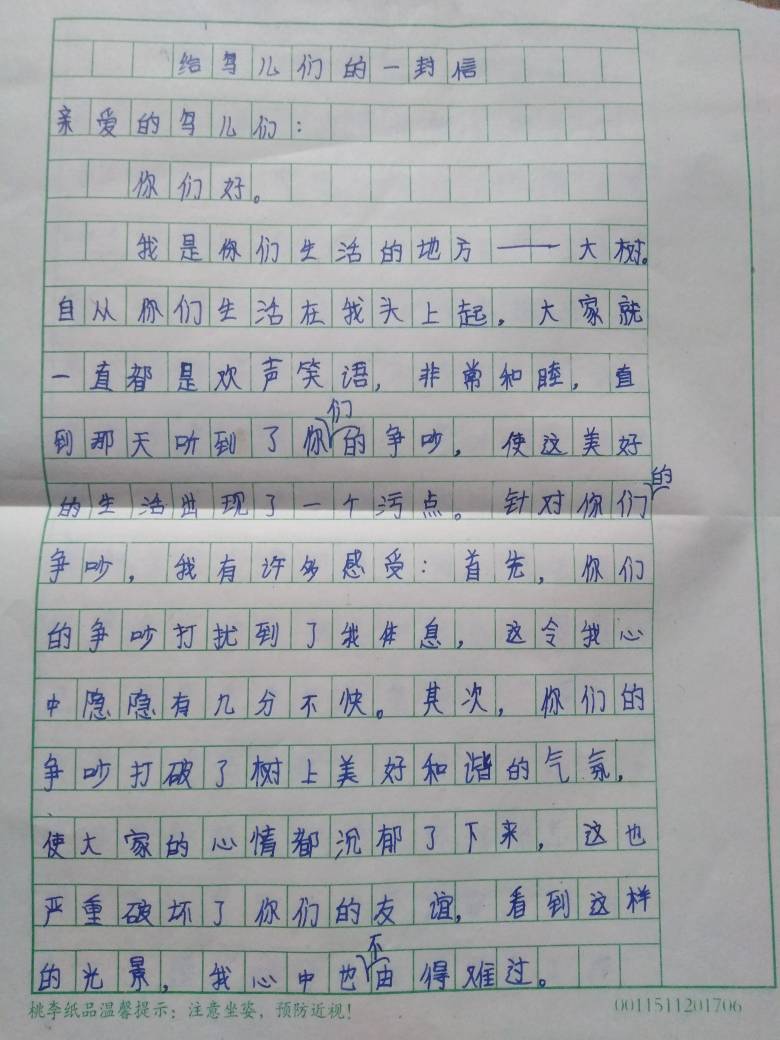 给鸟儿们的一封信
亲爱的鸟儿们：
你们好。
我是你们生活的地方——大树。
自从你们生活在我头上起，大家就
一直都是欢声笑语，非常和睦，直
到那天听到了你们的争吵，使这美好
的生活出现了一个污点。针对你们的
争吵，我有许多感受：首先，你们
的争吵打扰到了我休息，这令我心
中隐隐有几分不快。其次，你们的
争吵打破了树上美好和谐的气氛，
使大家的心情都沉郁了下来，这也
严重破坏了你们的友谊，看到这样
的光景，我心中也不由得难过。
桃李纸品温馨提示：注意坐姿，预防近视！ 0011511201706